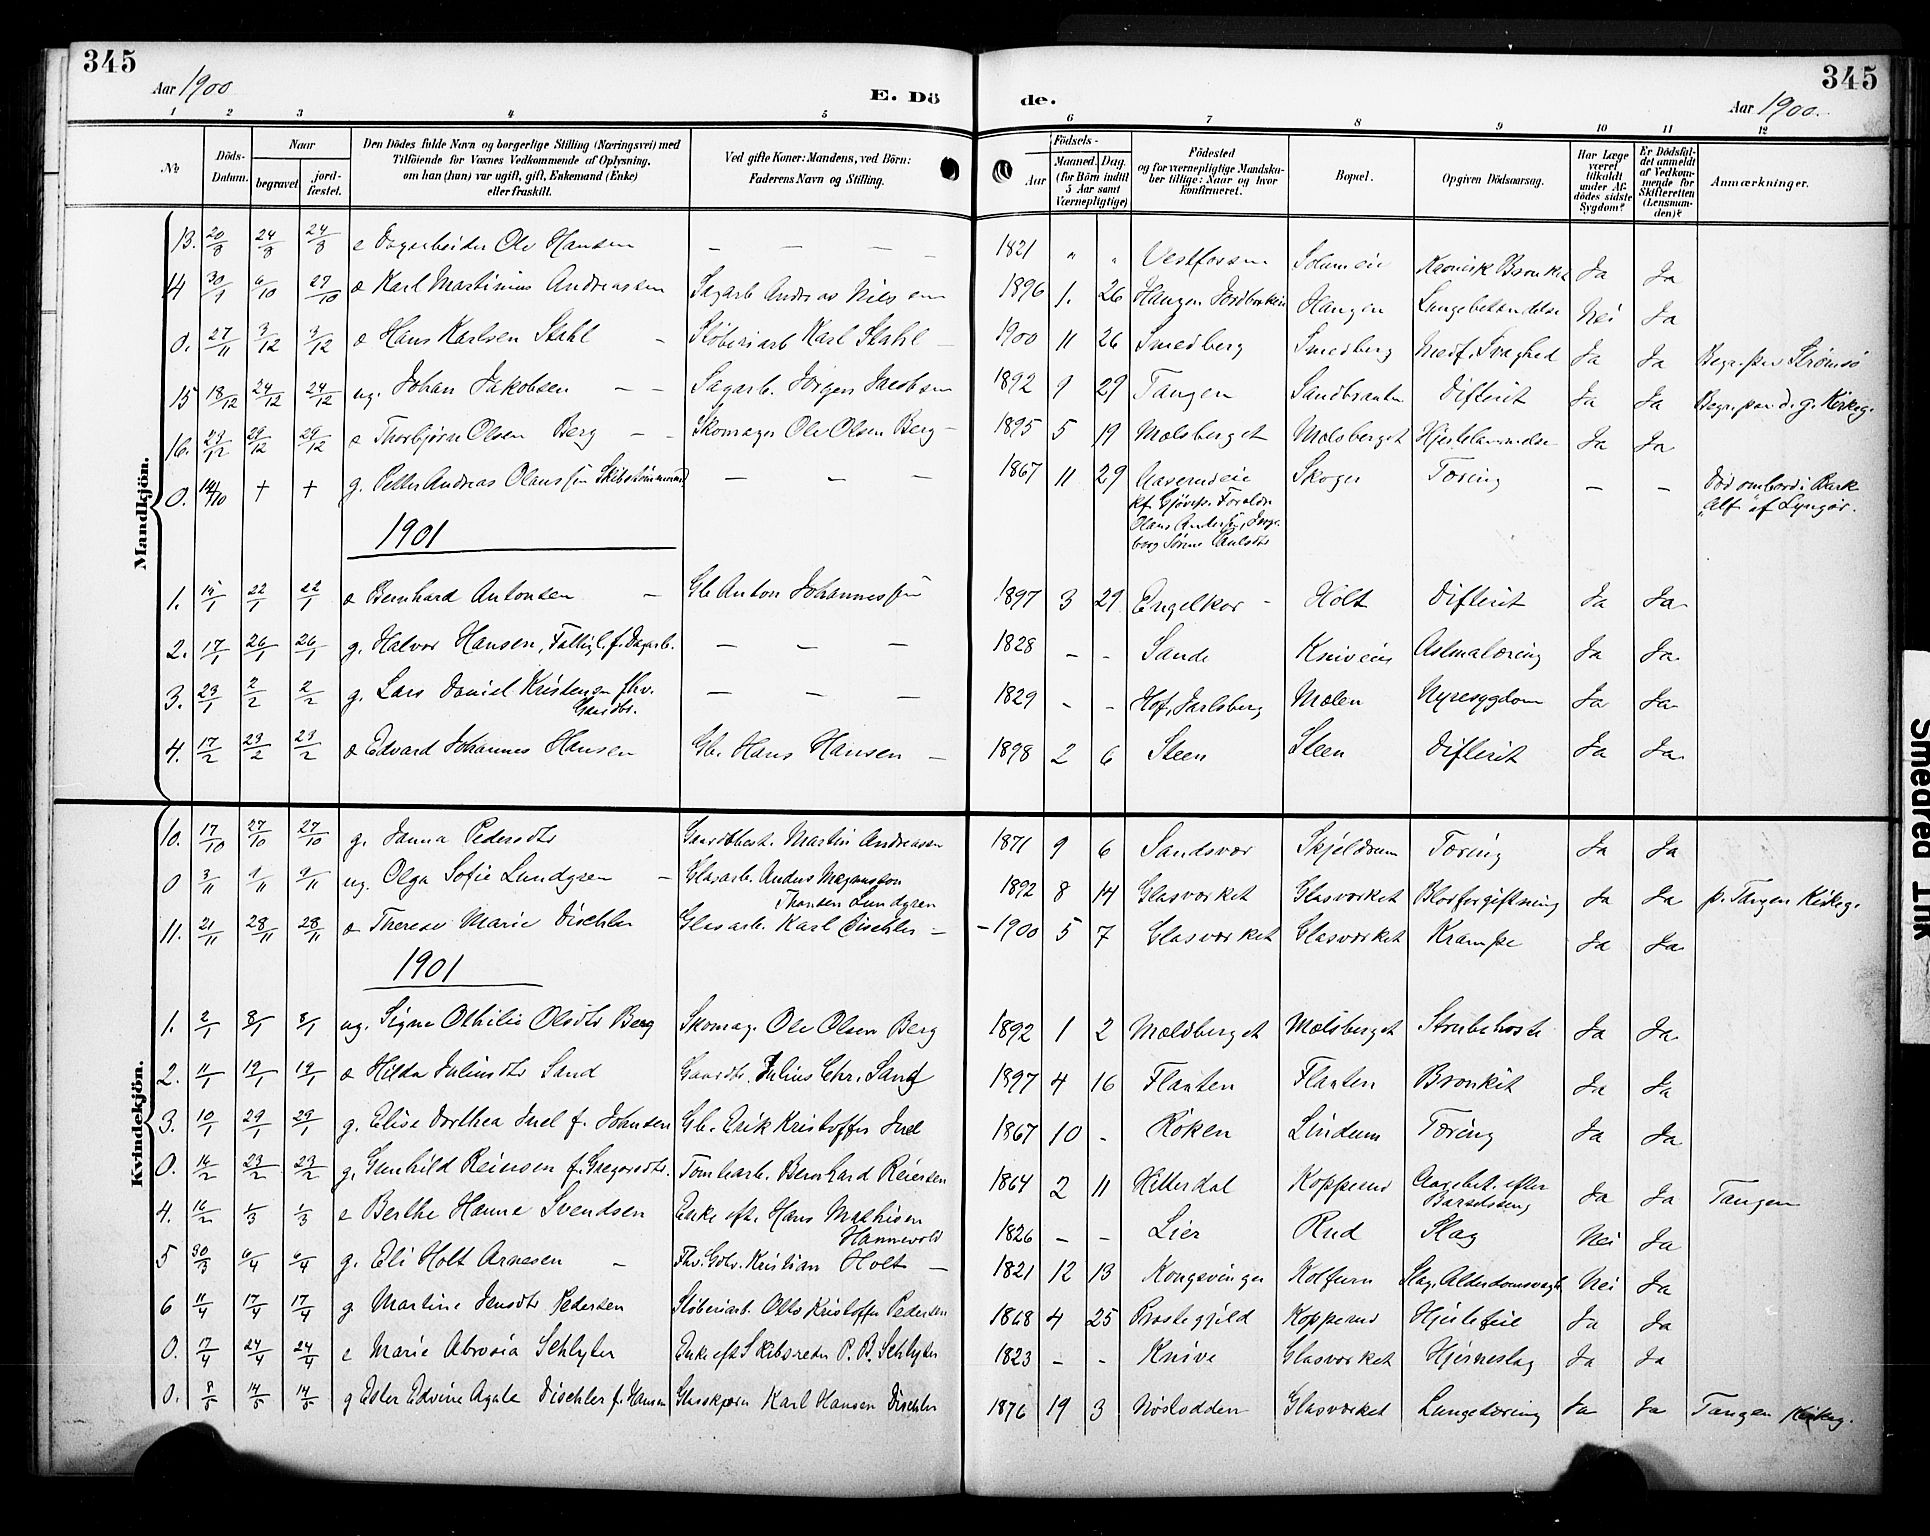 345
Aar 1900
E. Dö de.
345
Aar 1900.
1 2 3 4 5 6 7 8 9 10 11 12
No
Döds-Datum.
Naar
begravet.
jord-fæstet.
Den Dödes fulde Navn og borgerlige Stilling (Næringsvei) med
Tilföiende for Voxnes Vedkommende af Oplysning,
om han (hun) var ugift, gift, Enkemand (Enke)
eller fraskilt.
Ved gifte Koner: Mandens, ved Börn:
Faderens Navn og Stilling.
Födsels-
Aar
Maaned. Dag.
(for Börn indtil
5 Aar samt
Værnepligtige)
Födested
og for værnepligtige Mandskaber tillige: Naar og hvor
konfirmeret.
Bopæl.
Opgiven Dödsaarsag.
Har Læge
været
tilkaldt
under Afdödes sidste
Sygdom?
Er Dödsfaldet anmeldt
af Vedkommende for
Skifteretten
(Lensmanden)?
Anmærkninger.
Mandkjön.
13. 20/9 24/9 24/9 e Dagarbeider Ole Hansen — — — 1821 " " Vestfossen Solumeie Kronisk Bronkit Ja Ja
14 30/9 6/10 27/10 e Karl Martinius Andreassen Sagarb Andreas Nilssen 1896 1. 26 Haugen Haugen Lungebetændelse Nei Ja
0. 27/11 3/12 3/12 e Hans Karlsen Stahl — Støberiarb Karl Stahl — 1900 11 26 Smedberg Smedberg Medf. Svaghed Ja Ja Begr. paa Strømsø
15 18/12 24/12 24/12 ug. Johan Jakobsen — — Sagarb. Jörgen Jacobsen 1892 9 29 Tangen Sandbraaten Difterit Ja Ja Begr. paa d. g. Kirkeg.
16. 23/12 29/12 29/12 e Thorbjørn Olsen Berg — — Skomager Ole Olsen Berg — 1895 5 19 Mælsberget Mælsberget Hjertelammelse Ja Ja
0. 14/10 + + g. Petter Andreas Olaussen Skibstømmermand — — — 1867 11 29 Skoger Tæring — — Død ombord i Bark
"Alf" af Lyngør.
1901
1. 15/1 22/1 22/1 e Bernhard Antonsen — Gb Anton Johannessen 1897 3 29 Engelkor — Holt Difterit Ja Ja
2. 17/1 26/1 26/1 g. Halvor Hansen, Fattigl. f. Dagarb. — — — 1828 — - Sande Kniveeie Astmatæring Ja Ja
3. 23/1 2/2 2/2 g. Lars Daniel Kristensen fhv.
Gaardbr. — — — 1829 - - Hof, Jarlsberg Mælen Nyresygdom Ja Ja
4. 17/2 23/2 23/2 e Edvard Johannes Hansen Gb. Hans Hansen — 1898 2 6 Steen Steen Difterit Ja Ja
Kvindekjön.
10. 17/10 27/10 27/10 g. Janna Pedersdtr Martin Andreassen 1871 9 6 Sandsvær Skjeldrum Tæring Ja Ja
0 3/11 9/11 9/11 ug. Olga Sofie Lundgren — Glasarb. Anders Magnusson
Lundgren 1892 8 14 Glasværket Glasværket Blodforgiftning Ja Ja p. Tangen Kirkeg.
11. 21/11 28/11 28/11 e Therese Marie Dischler Glasarb. Karl Dischler — -1900 5 7 Glasværket Glasværket Krampe Ja Ja
1901
1. 2/1 8/1 8/1 ug. Signe Othilie Olsdtr Berg Skomag. Ole Olsen Berg 1892 1 2 Mælsberget Mælsberget Strubehoste Ja Ja
2. 11/1 19/1 19/1 e Hilda Juliusdtr Sand Gaardbr. Julius Chr. Sand 1897 4 16 Flaaten Flaaten Bronkit Ja Ja
3. 10/1 29/1 29/1 g. Elise Dorthea Juel f. Johnsen Gb. Erik Kristoffer Juel 1867 10 - Röken Lindum Tæring Ja Ja
0. 16/2 23/2 23/2 g. Gunhild Reiersen f. Gregersdtr. Tomtearb. Bernhard Reiersen 1864 2 11 Hitterdal Kopperud efter
Barselseng Ja Ja Tangen
4. 16/2 1/3 1/3 e Berthe Hanne Svendsen Enke eft. Hans Mathisen
Hannevold 1826 — - Lier Rud Slag Nei Ja
5 30/3 6/4 6/4 g. Eli Holt Arnesen — Fhv. Gbr. Kristian Holt — 1821 12 13 Kongsvinger Slag. Alderdomssvagh. Nei Ja
6 11/4 17/4 17/4 g Martine Jensdtr Pedersen Støberiarb. Otto Kristoffer Pedersen 1868 4 25 Præstegjeld Kopperud Hjertefeil Ja Ja
0. 17/4 24/4 24/4 e Marie Abrosia Schlyter Enke eft Skibsreder P. B. Schlyter 1823 - - Knive Glasværket Hjerneslag Ja Ja
0. 8/5 14/5 14/5 g Ester Edvine Agate Dischler f. Hansen Karl Hansen Dischler 1876 19 3 Nøstodden Glasværket Lungetæring Ja Ja Tangen Kirkeg.